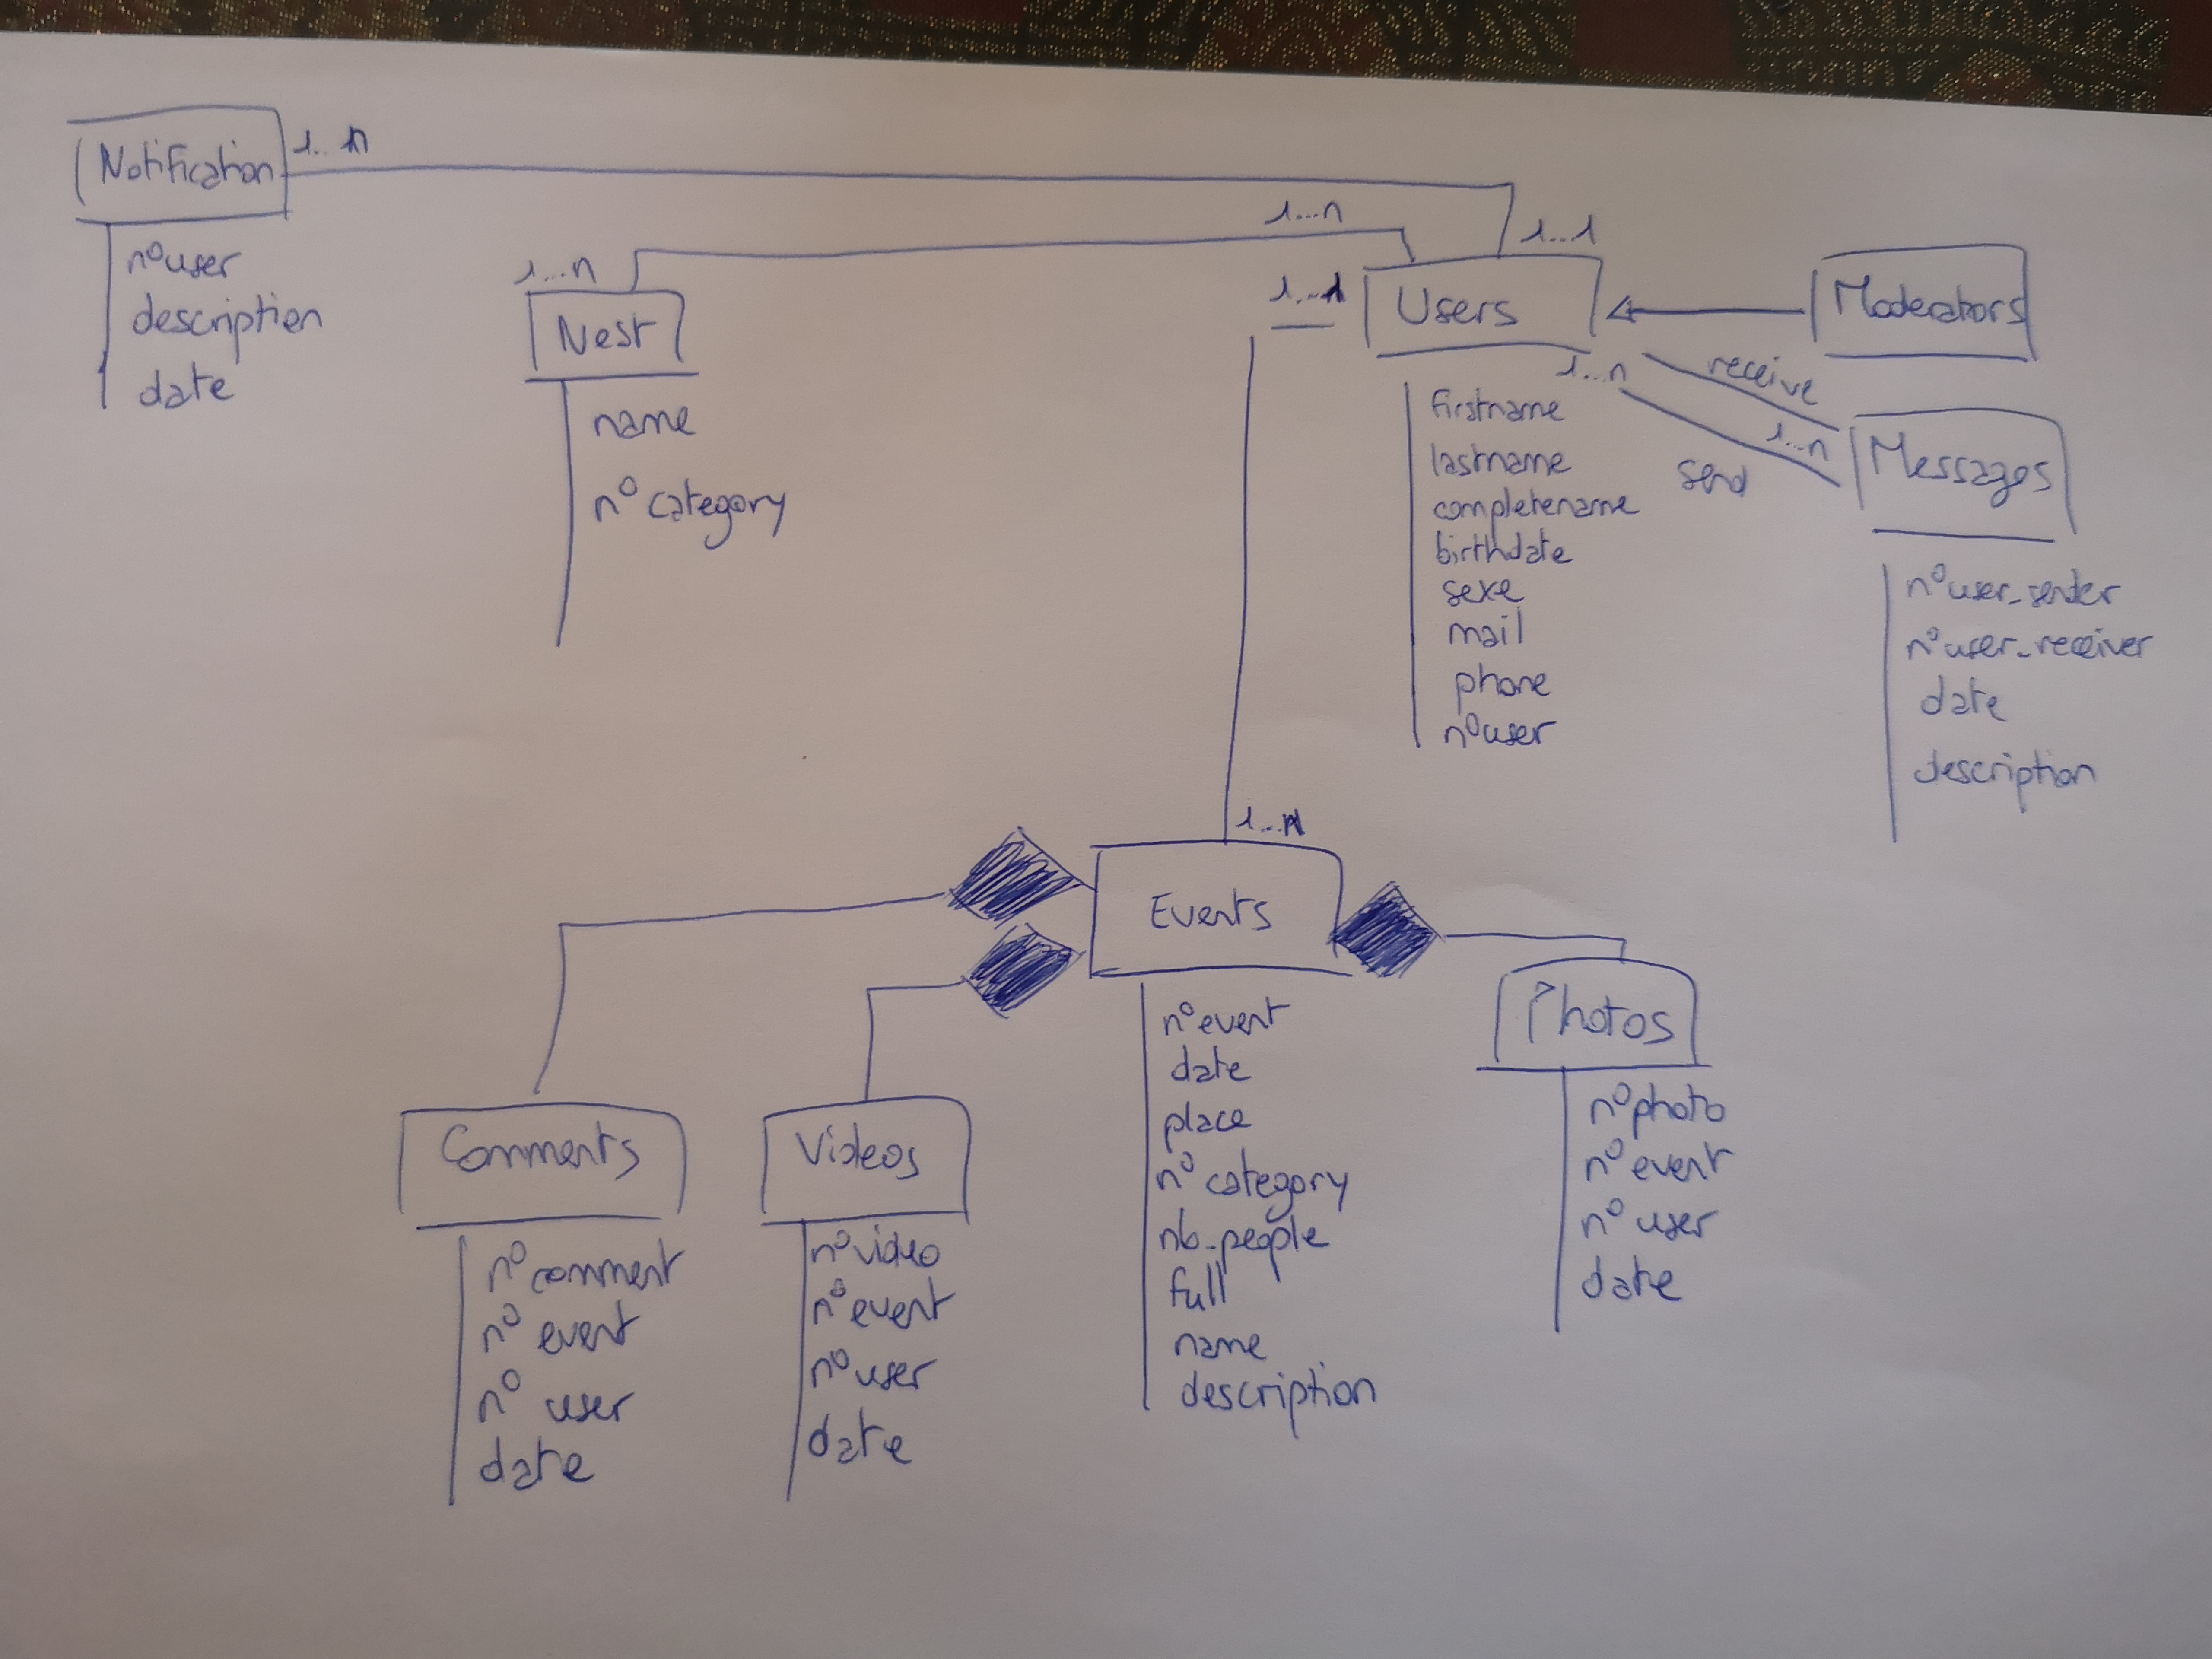 Notification
1...n
n° user
description
date
1...n
Nest
name
n° category
1...n
1...1
1...1
Users
firstname
lastname
completename
birthdate
sexe
mail
phone
n° user
Moderators
1...n
receive
1...n
send
Messages
n° user_sender
n° user_receiver
date
description
1...n
Events
n° event
date
place
n° category
nb_people
full
name
description
Photos
n° photo
n° event
n° user
date
Comments
n° comment
n° event
n° user
date
Videos
n° video
n° event
n° user
date